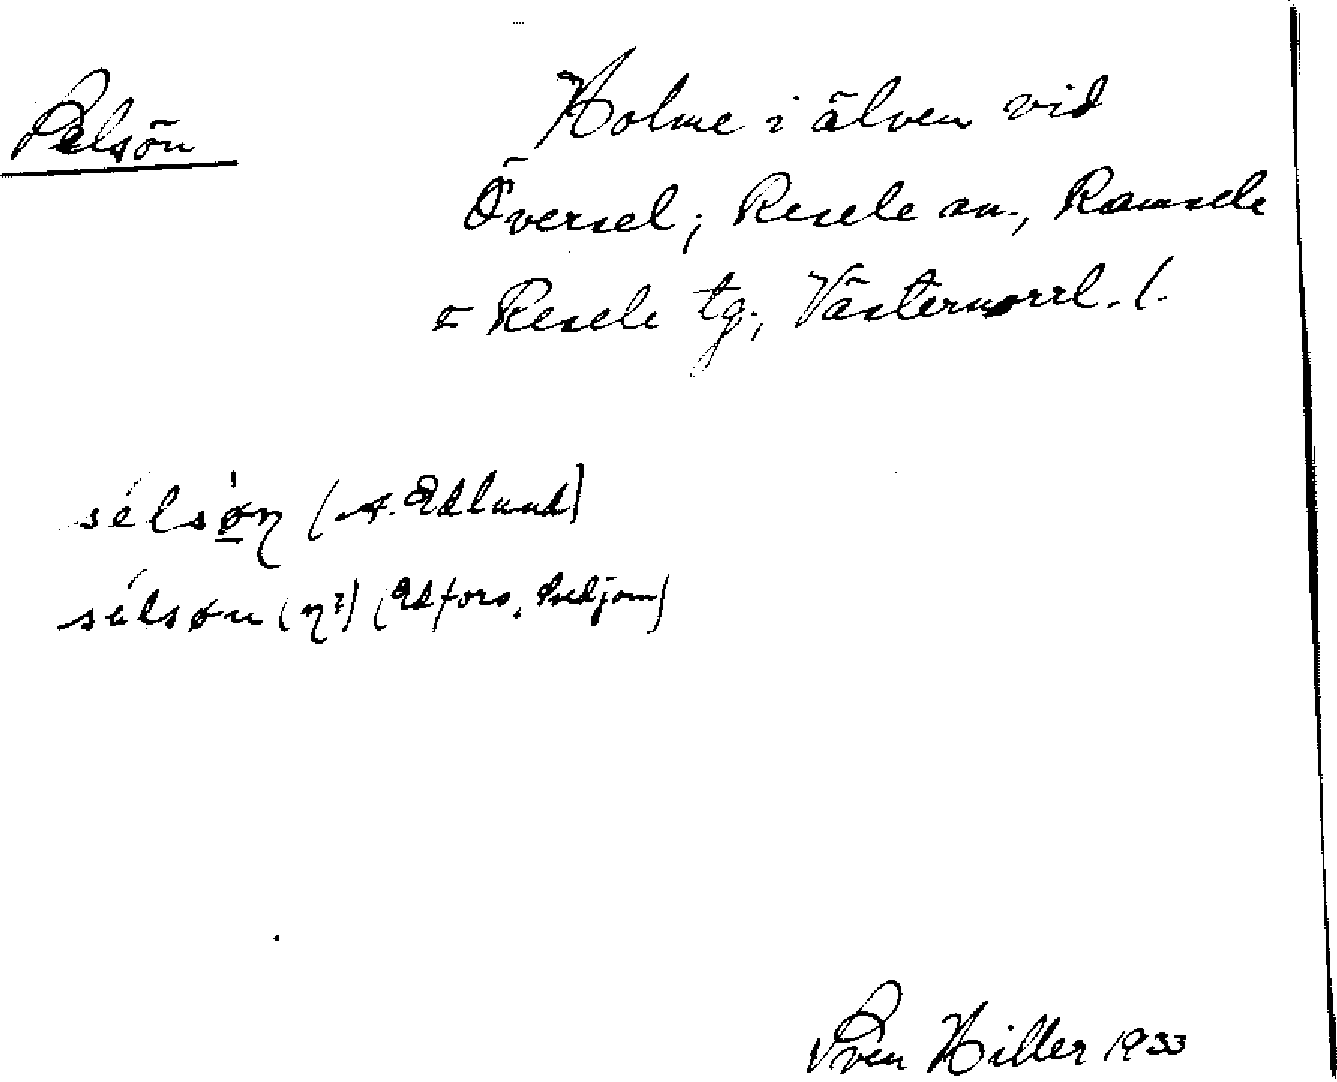 Selsön
Holme i älven vid
Översel; Resele sn., Ramsele
o Resele tg., Västernorrl. l.
sélsøŋ (A. Edlund)
sélsøn (ŋ?) (Edfors,
Sven Hiller 1933